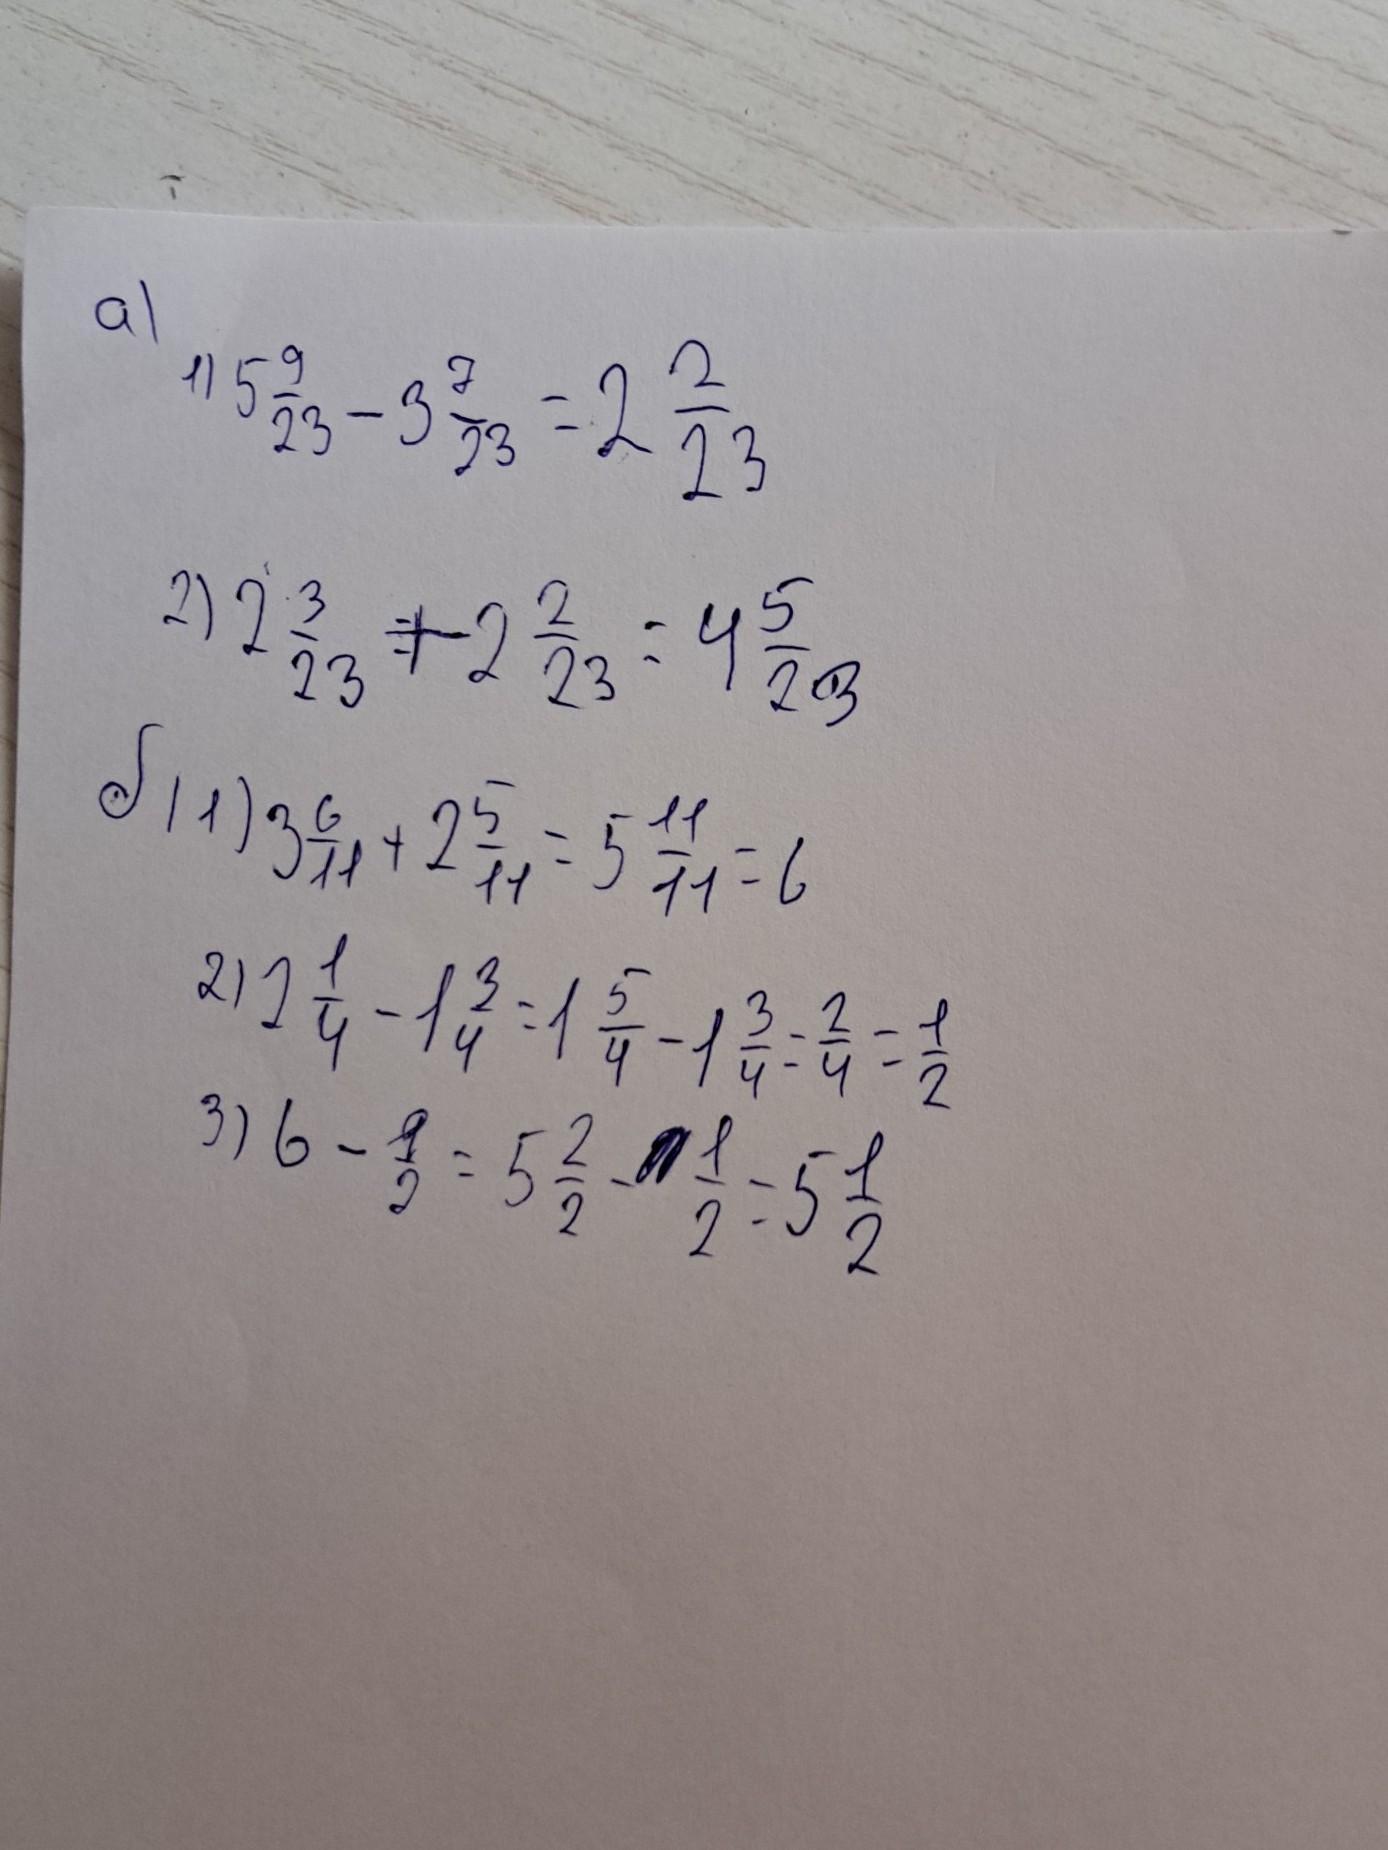 а)
1) 5 9/23 - 3 7/23 = 2 2/23
2) 2 3/23 + 2 2/23 = 4 5/23
б) 1) 3 6/11 + 2 5/11 = 5 11/11 = 6
2) 2 1/4 - 1 3/4 = 1 5/4 - 1 3/4 = 2/4 = 1/2
3) 6 - 1/2 = 5 2/2 - 1/2 = 5 1/2